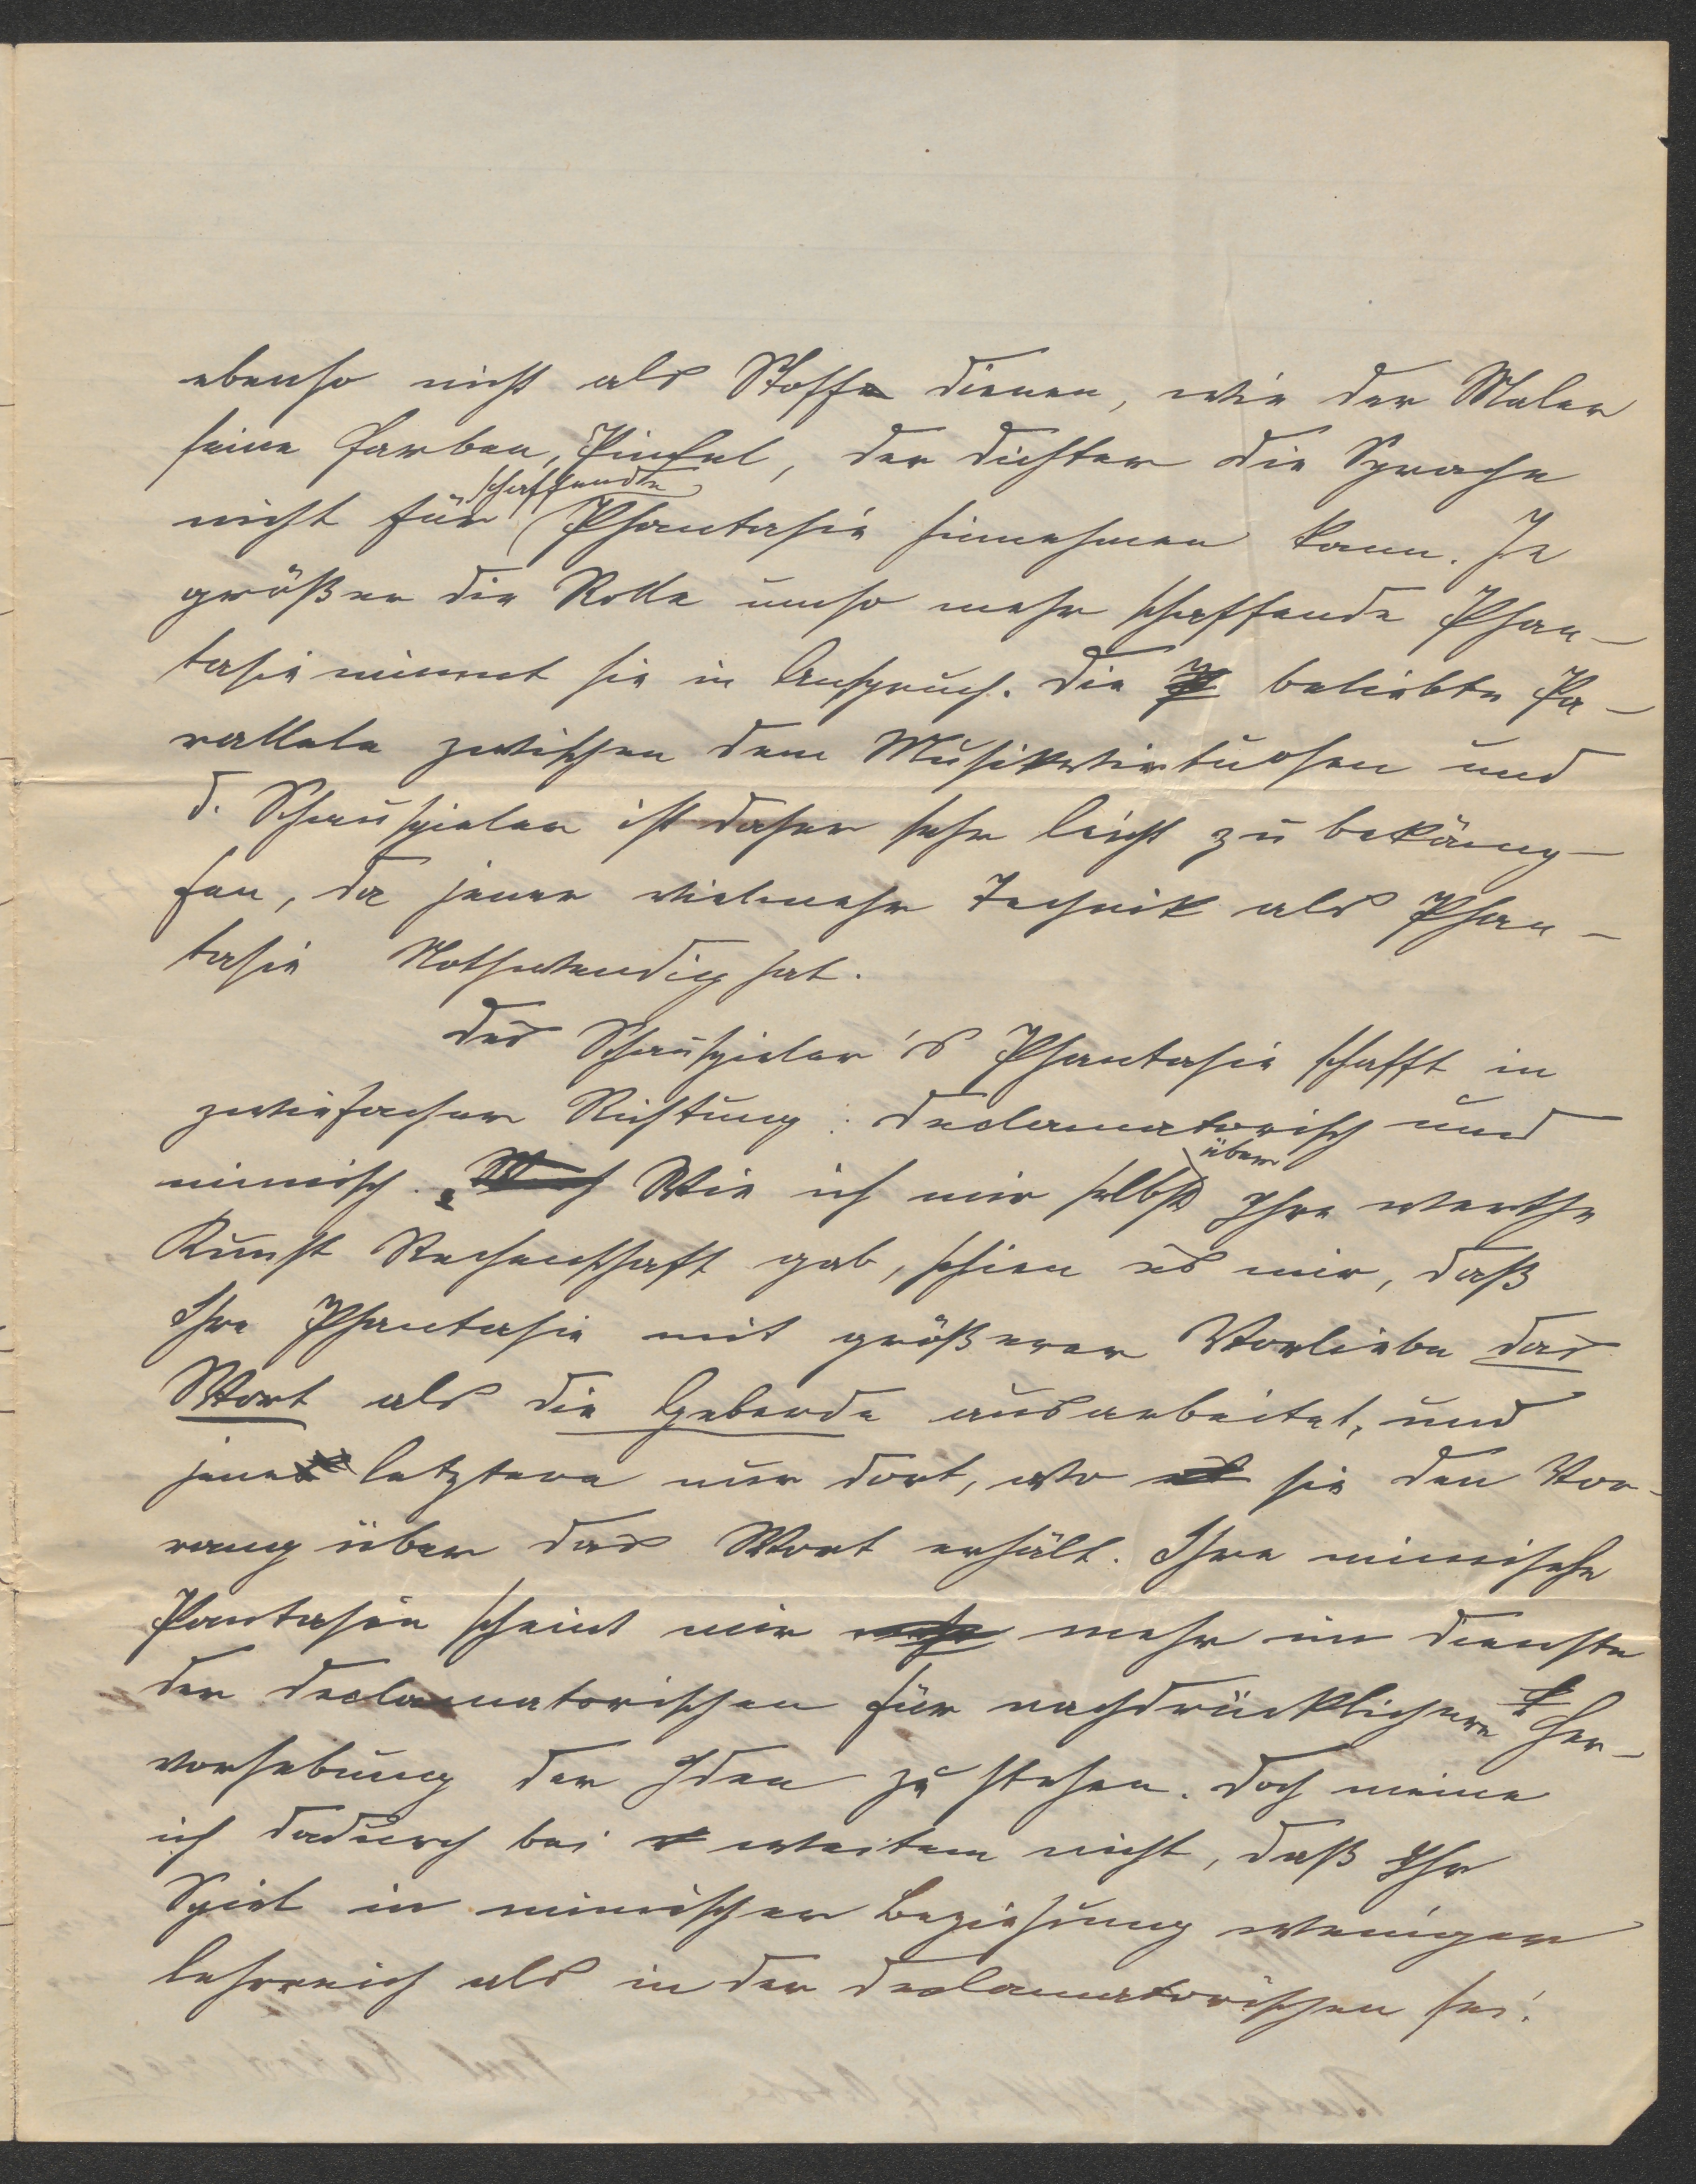 ebenso nicht als Stoff dienen, wie der Maler
seine Farben, Pinsel, der Dichter die Sprache
nicht für schaffende Phantasie hinnehmen kann. Je
größer die Rolle umso mehr schaffende Phan-
tasie nimmt sie in Anspruch. Die beliebte Pa-
rallele zwischen dem Musikvirtuosen und
d. Schauspieler ist daher sehr leicht zu bekämp-
fen, da jener vielmehr Technik als Phan-
tasie Nothwendig hat.
Des Schauspieler's Phantasie schafft in
zwiefacher Richtung: declamatorisch und
mimisch. Wie ich mir selbst über Ihre werthe
Kunst Rechenschaft gab, schien es mir, daß
Ihre Phantasie mit größerer Vorliebe das
Wort als die Geberde ausarbeitet, und
jene letztere nur dort, wo sie den Vor-
rang über das Wort erhält. Ihre mimische
Pantasie scheint mir mehr im Dienste
der declamatorischen für nachdrücklichere Her-
vorhebung der Idee zu stehen. Doch meine
ich dadurch bei weitem nicht, daß Ihr
Spiel in mimischer Beziehung weniger
lehrreich als in der declamatorischen sei.